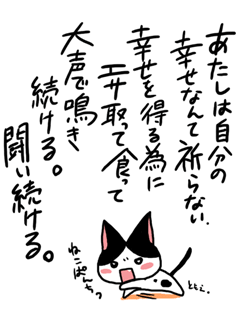 あたしは自分の
幸せなんて祈らない。
幸せを得る為に
エサ取って食って
大声で鳴き
続ける。
闘い続ける。
ねこぱんちっ
ともえ。